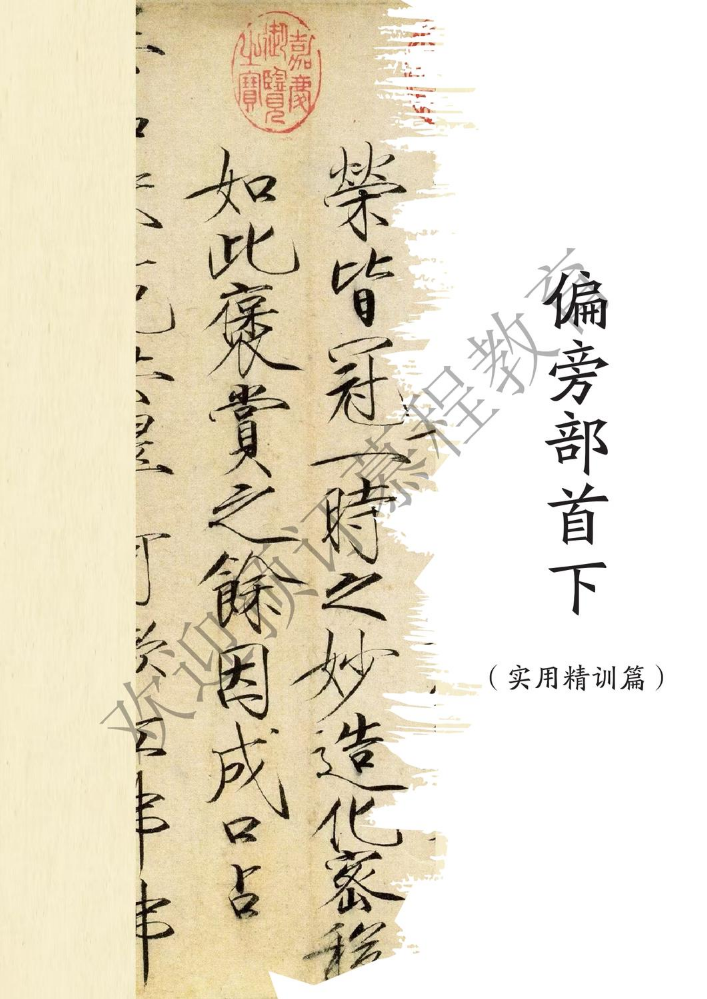 偏旁部首下
（实用精训篇）
嘉慶
御覽
之寶
榮皆冠一時之妙造化密移
如此褒賞之餘因成口占
欢迎预评慕程教育